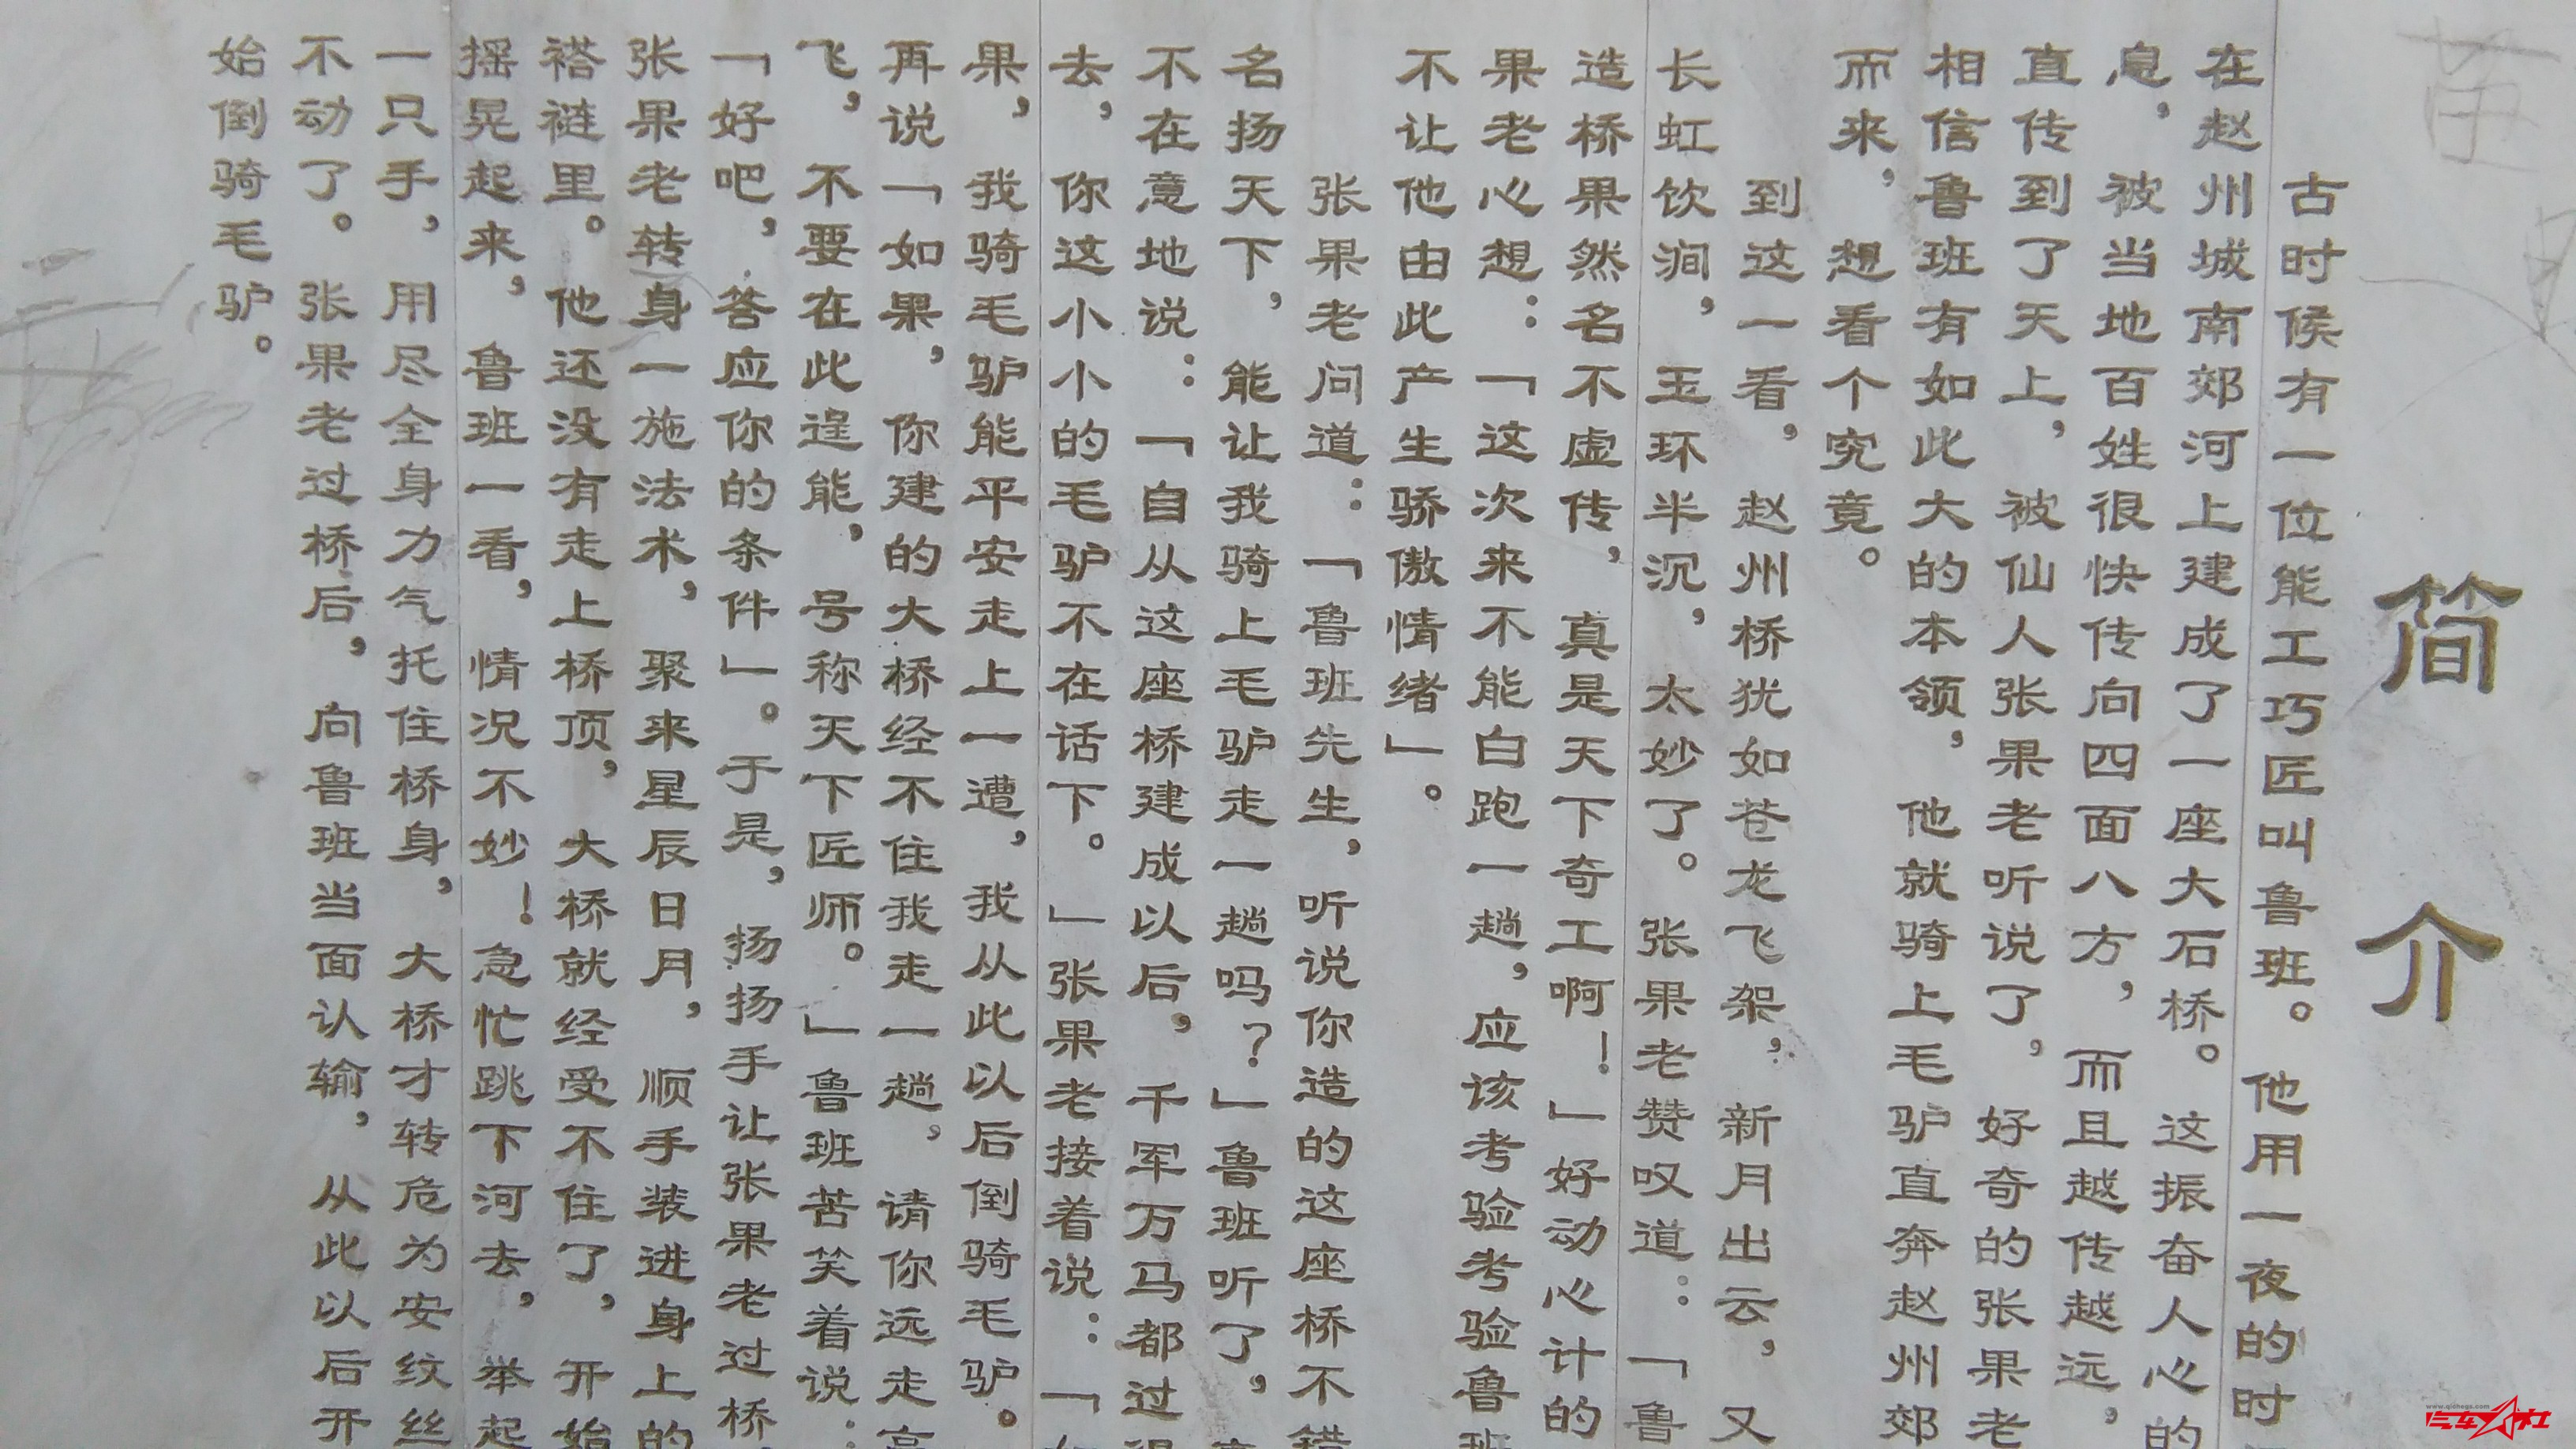 简介
古时候有一位能工巧匠叫鲁班。他用一夜的时
在赵州城南郊河上建成了一座大石桥。这振奋人心的
息，被当地百姓很快传向四面八方，而且越传越远，
直传到了天上，被仙人张果老听说了，好奇的张果老
相信鲁班有如此大的本领，他就骑上毛驴直奔赵州郊
而来，想看个究竟。
到这一看，赵州桥犹如苍龙飞架，新月出云，又
长虹饮涧，玉环半沉，太妙了。张果老赞叹道：「鲁
造桥果然名不虚传，真是天下奇工啊！」好动心计的
果老心想：「这次来不能白跑一趟，应该考验考验鲁班
不让他由此产生骄傲情绪」。
张果老问道：「鲁班先生，听说你造的这座桥不错
名扬天下，能让我骑上毛驴走一趟吗？」鲁班听了，
不在意地说：「自从这座桥建成以后，千军万马都过
去，你这小小的毛驴不在话下。」张果老接着说：「
果，我骑毛驴能平安走上一遭，我从此以后倒骑毛驴。
再说「如果，你建的大桥经不住我走一趟，请你远走
飞，不要在此逞能，号称天下匠师。」鲁班苦笑着说：
「好吧，答应你的条件」。于是，扬扬手让张果老过桥，
张果老转身一施法术，聚来星辰日月，顺手装进身上的
褡裢里。他还没有走上桥顶，大桥就经受不住了，开始
摇晃起来，鲁班一看，情况不妙！急忙跳下河去，举起
一只手，用尽全身力气托住桥身，大桥才转危为安纹丝
不动了。张果老过桥后，向鲁班当面认输，从此以后开
始倒骑毛驴。
www.qichegs.com
汽车人社